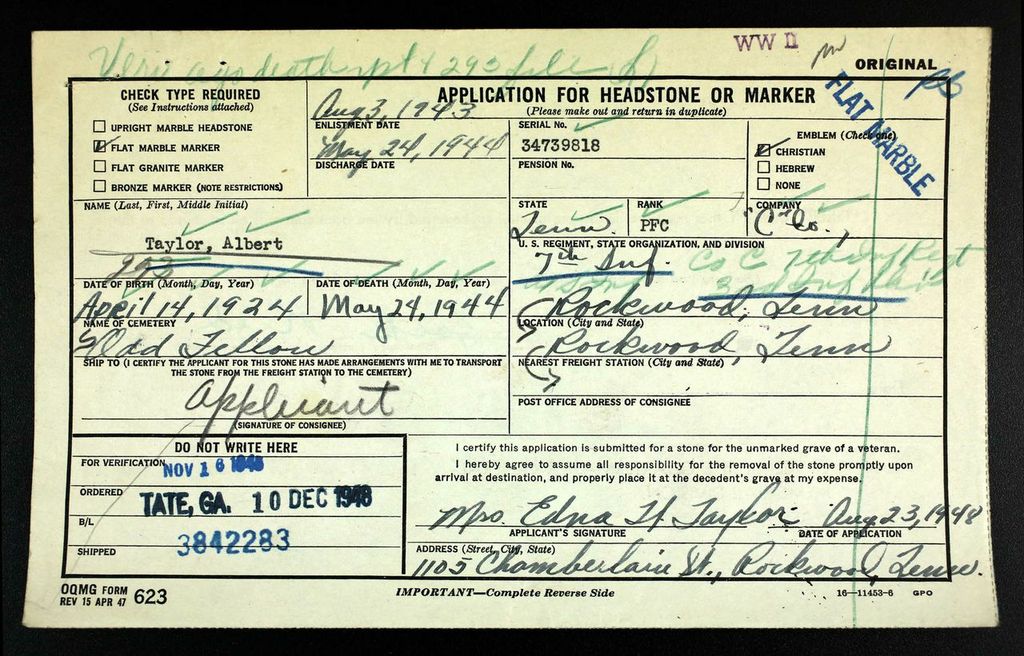 WW II
ORIGINAL
CHECK TYPE REQUIRED
(See Instructions attached)
UPRIGHT MARBLE HEADSTONE
FLAT MARBLE MARKER
FLAT GRANITE MARKER
BRONZE MARKER (NOTE RESTRICTIONS)
Aug 3, 1943
ENLISTMENT DATE
May 24, 1944
DISCHARGE DATE
APPLICATION FOR HEADSTONE OR MARKER
(Please make out and return in duplicate)
SERIAL No.
34739818
PENSION No.
EMBLEM (Check one)
CHRISTIAN
HEBREW
NONE
FLAT MARBLE
NAME (Last, First, Middle Initial)
Taylor, Albert
293
STATE
Tenn.
RANK
PFC
COMPANY
"C" Co.,
U. S. REGIMENT, STATE ORGANIZATION, AND DIVISION
7th Inf.
Co C 7th Inf Regt
3rd Inf Div
DATE OF BIRTH (Month, Day, Year)
April 14, 1924
DATE OF DEATH (Month, Day, Year)
May 24, 1944
NAME OF CEMETERY
Odd Fellow
Rockwood, Tenn
LOCATION (City and State)
Rockwood, Tenn
NEAREST FREIGHT STATION (City and State)
SHIP TO (I CERTIFY THE APPLICANT FOR THIS STONE HAS MADE ARRANGEMENTS WITH ME TO TRANSPORT
THE STONE FROM THE FREIGHT STATION TO THE CEMETERY)
Applicant
(SIGNATURE OF CONSIGNEE)
POST OFFICE ADDRESS OF CONSIGNEE
DO NOT WRITE HERE
FOR VERIFICATION
NOV 16 1948
ORDERED
TATE, GA. 10 DEC 1948
B/L
3842283
SHIPPED
I certify this application is submitted for a stone for the unmarked grave of a veteran.
I hereby agree to assume all responsibility for the removal of the stone promptly upon
arrival at destination, and properly place it at the decedent's grave at my expense.
Mrs. Edna H Taylor Aug 23, 1948
APPLICANT'S SIGNATURE
DATE OF APPLICATION
ADDRESS (Street, City, State)
1105 Chamberlain St., Rockwood, Tenn.
OQMG FORM
REV 15 APR 47 623
IMPORTANT—Complete Reverse Side
16—11453-6 GPO